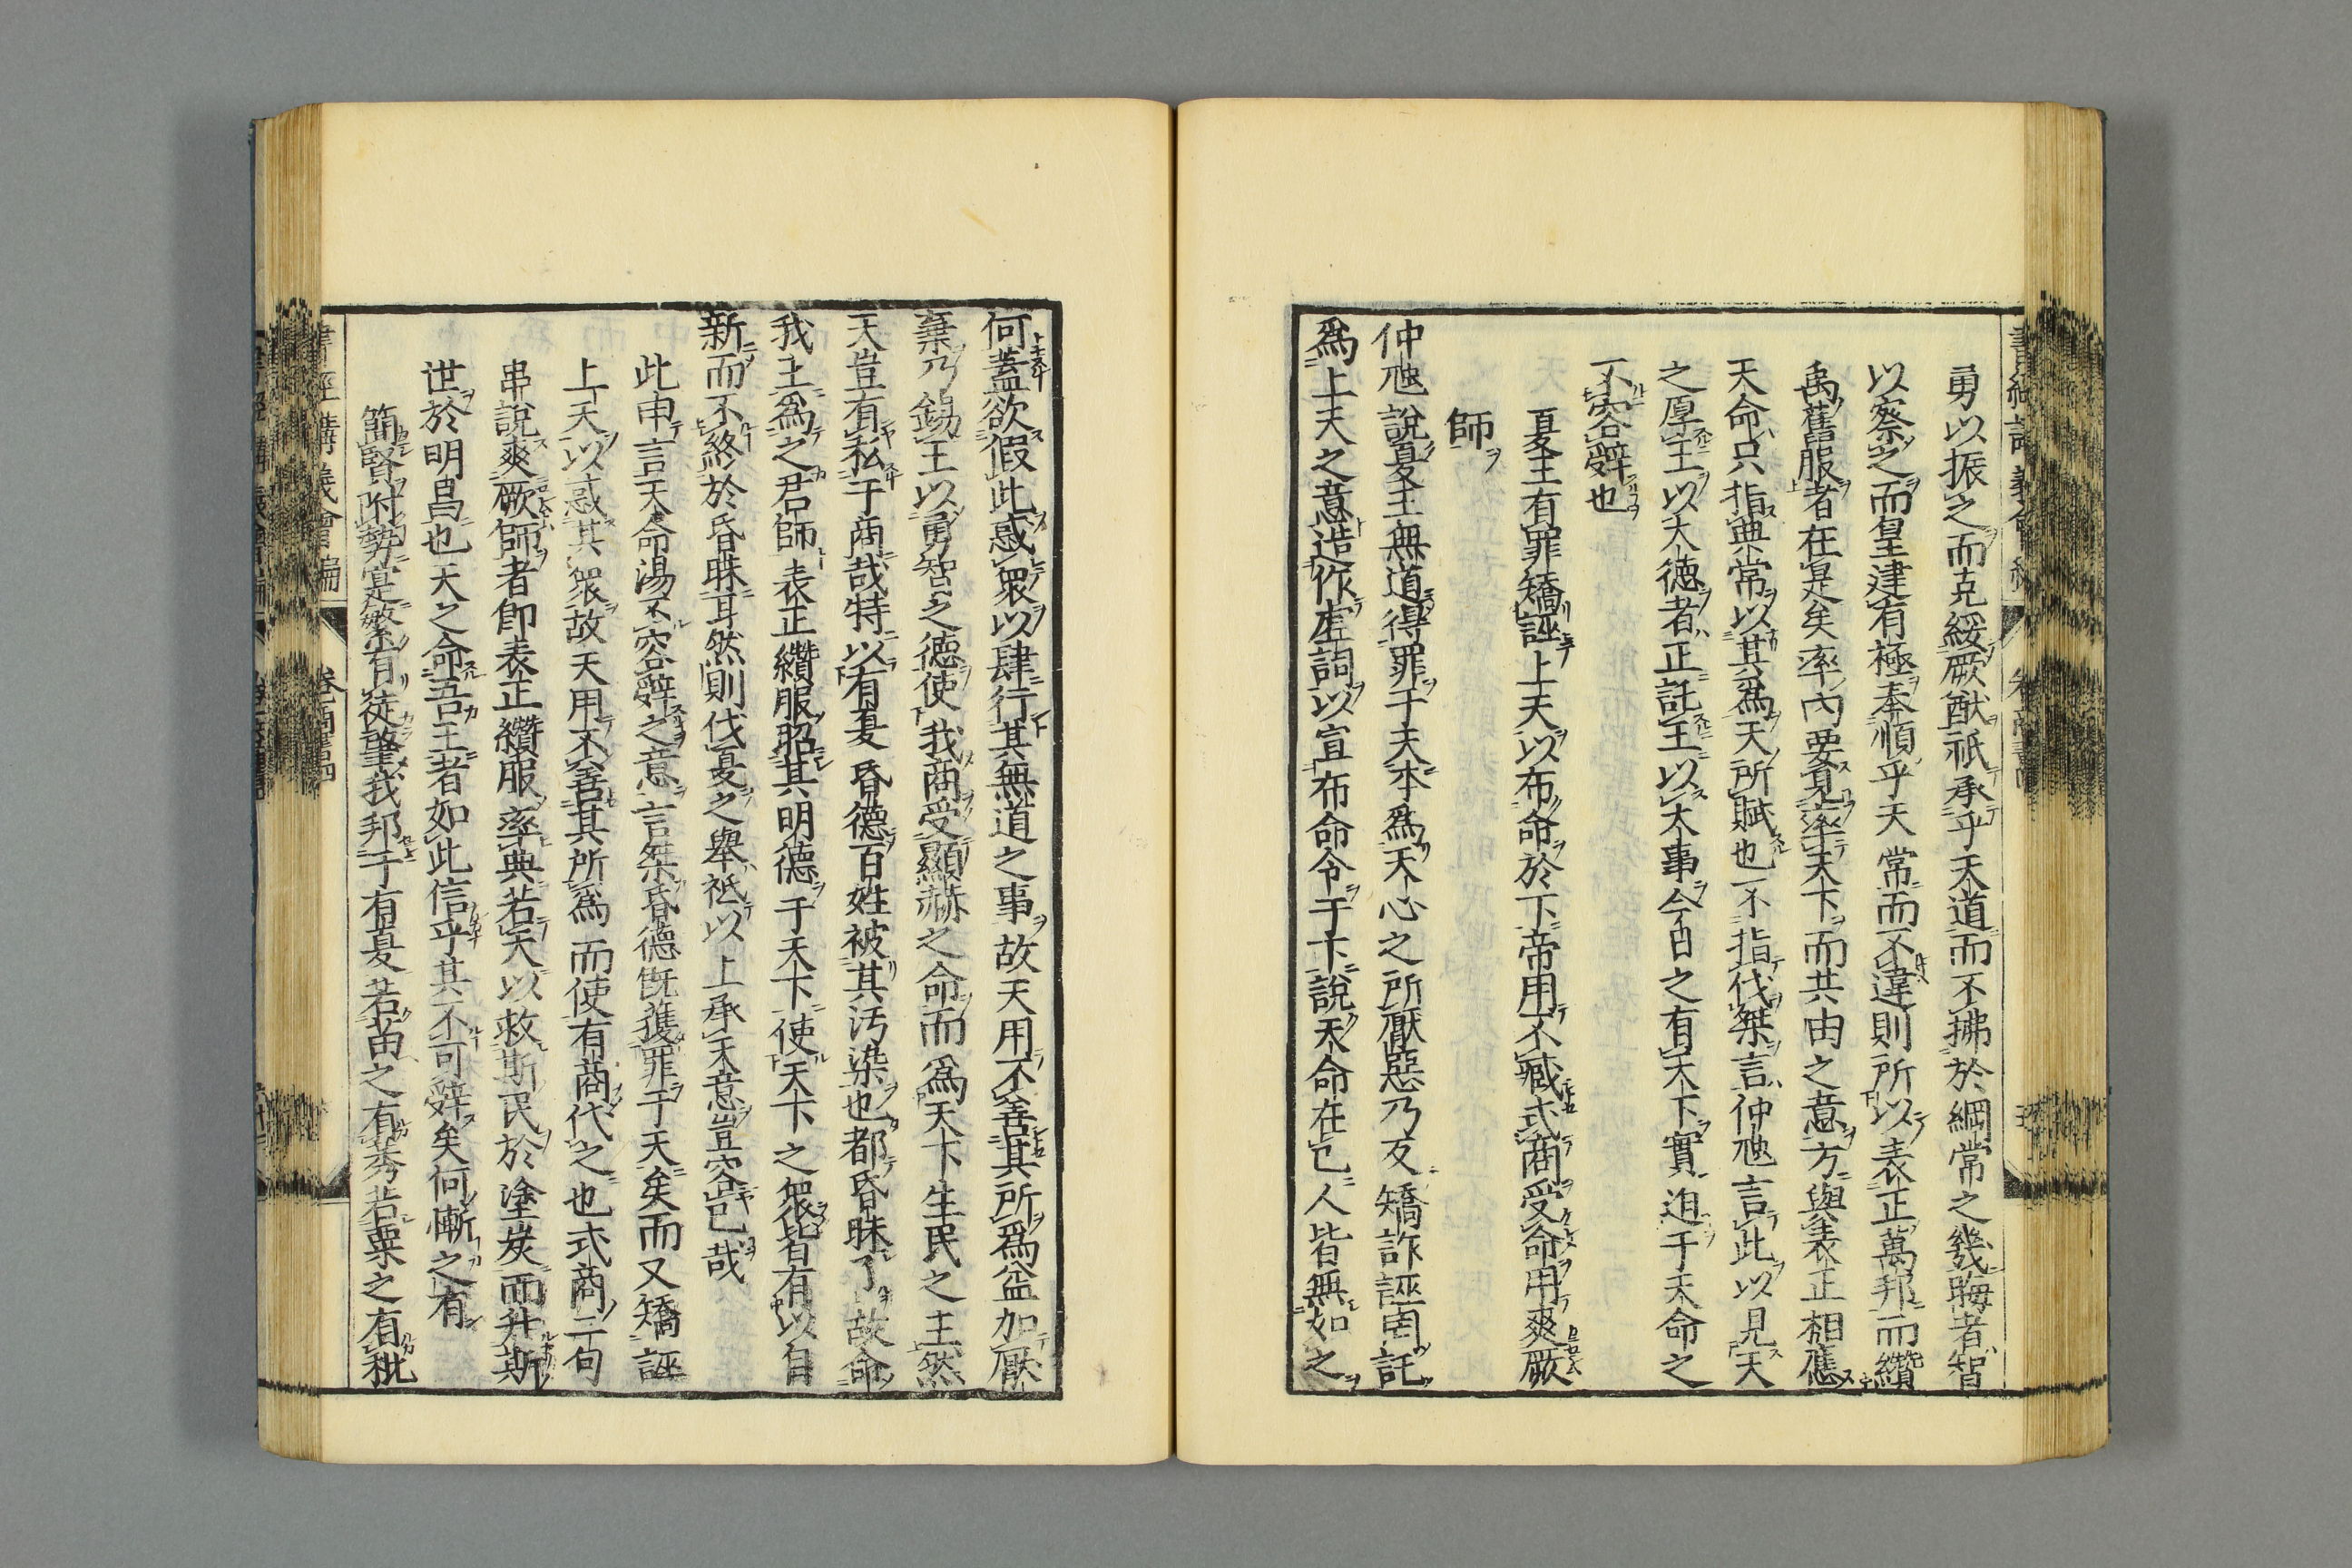 勇以振之而克綏厥猷祇承乎天道而不拂於綱常之幾晦者智
以察之而皇建有極奉順乎天常而不違則所以表正萬邦而纘
禹舊服者在是矣率內要見率天下而共由之意方與表正相應
天命只指典常以其爲天所賦也不指代桀言仲虺言此以見天
之厚王以大德者正託王以大事今日之有天下實迫于天命之
不容辭也
夏王有罪矯誣上天以布命於下帝用不臧式商受命用爽厥
師
仲虺說夏王無道得罪于夫本爲天心之所厭惡乃反矯詐誣罔託
爲上天之意造作虛詞以宣布命令于下說天命在己人皆無如之
何蓋欲假此惑眾以肆行其無道之事故天用不善其所爲益加厭
棄乃錫王以勇智之德使我商受顯赫之命而爲天下生民之主然
天豈有私于商哉特以有夏昏德百姓被其汚染也都昏昧了故命
我王爲之君師表正纘服昭其明德于天下使天下之眾皆有以自
新而不終於昏昧耳然則伐夏之舉祗以上承天意豈容已哉
此申言天命湯不容辭之意言桀昏德既獲罪于天矣而又矯誣
上天以惑其眾故天用不善其所爲而使有商代之也式商二句
串說爽厥師者卽表正纘服率典若天以救斯民於塗炭而升斯
世於明昌也天之命吾王者如此信乎其不可辭矣何慚之有
簡賢附勢寔繁有徒肇我邦于有夏若苗之有莠若粟之有秕
書經講義會編
卷三商書